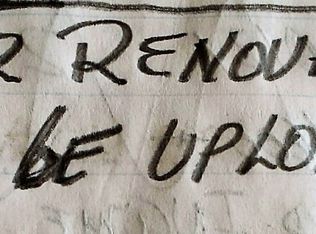 R RENOU
BE UPLO